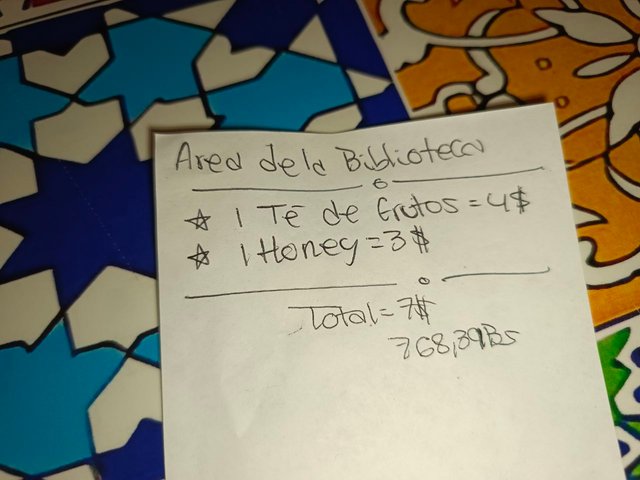 Area de la Biblioteca
☆ 1 Té de frutos = 4$
☆ 1 Honey = 3$
Total = 7$
768,39Bs